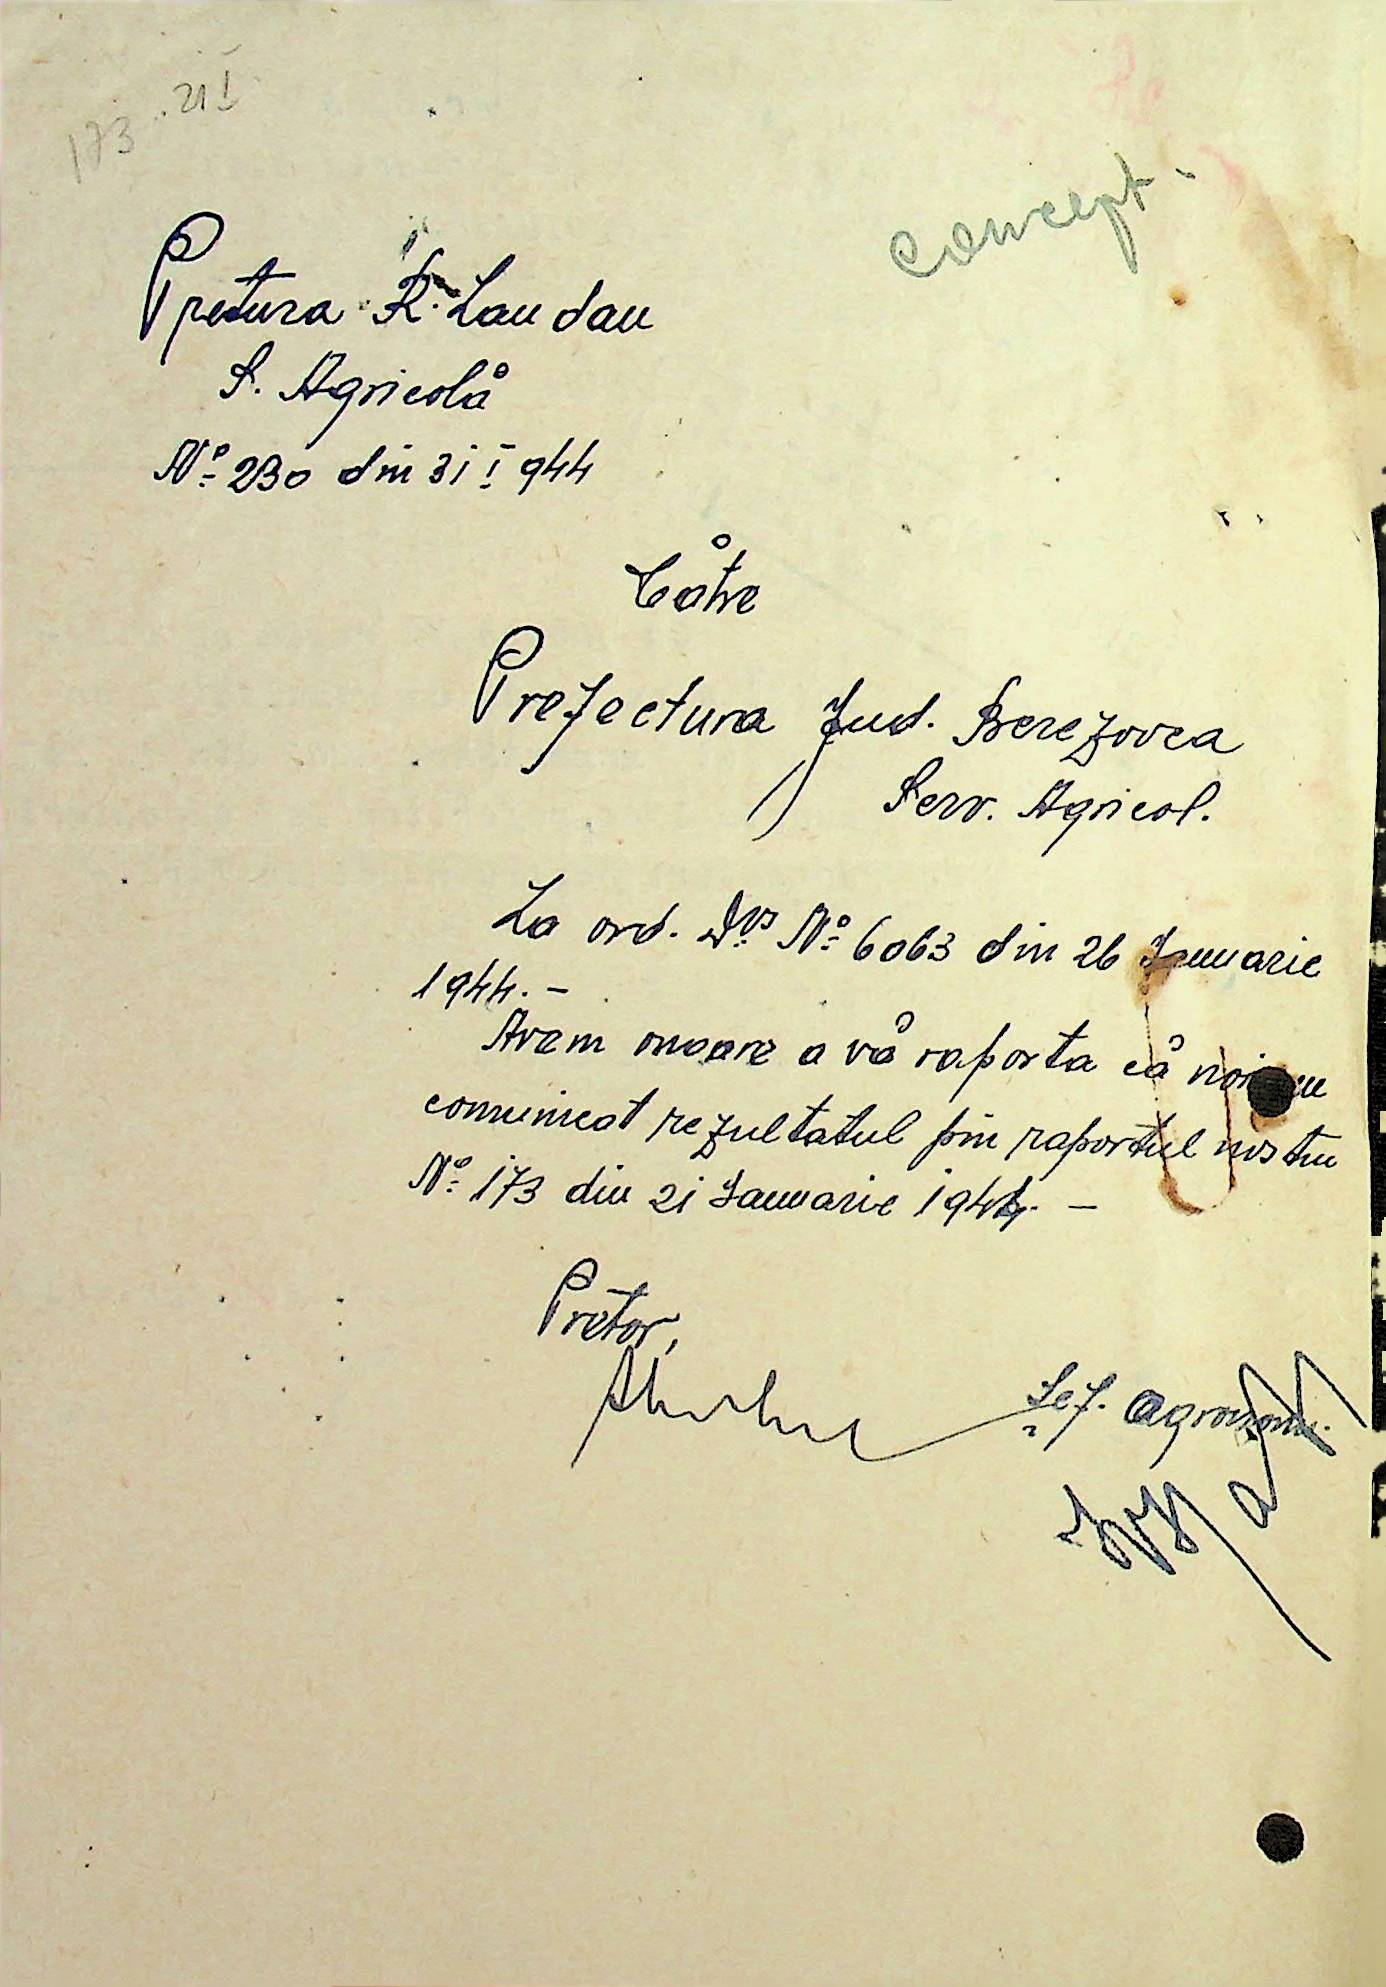 173 . 21 I
concept.
Pretura R. Landau
S. Agricolă
No 230 din 31 I 944
Către
Prefectura Jud. Berezovca
Serv. Agricol.
La ord. Dvs No 6063 din 26 Januarie
1944. –
Avem onoare a vă raporta că noi am
comunicat rezultatul pin raportul nostru
No 173 din 21 Januarie 1944. –
Pretor,
Șef. agronom.